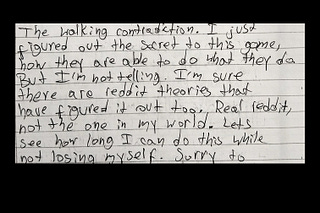 The walking contradiction. I just
figured out the secret to this game,
how they are able to do what they do
But I'm not telling. I'm sure
there are reddit theories that
have figured it out too. Real reddit,
not the one in my world. Lets
see how long I can do this while
not losing myself. Sorry to